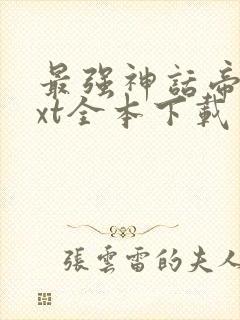 最强神話帝
xt全本下載
張雲雷的夫人